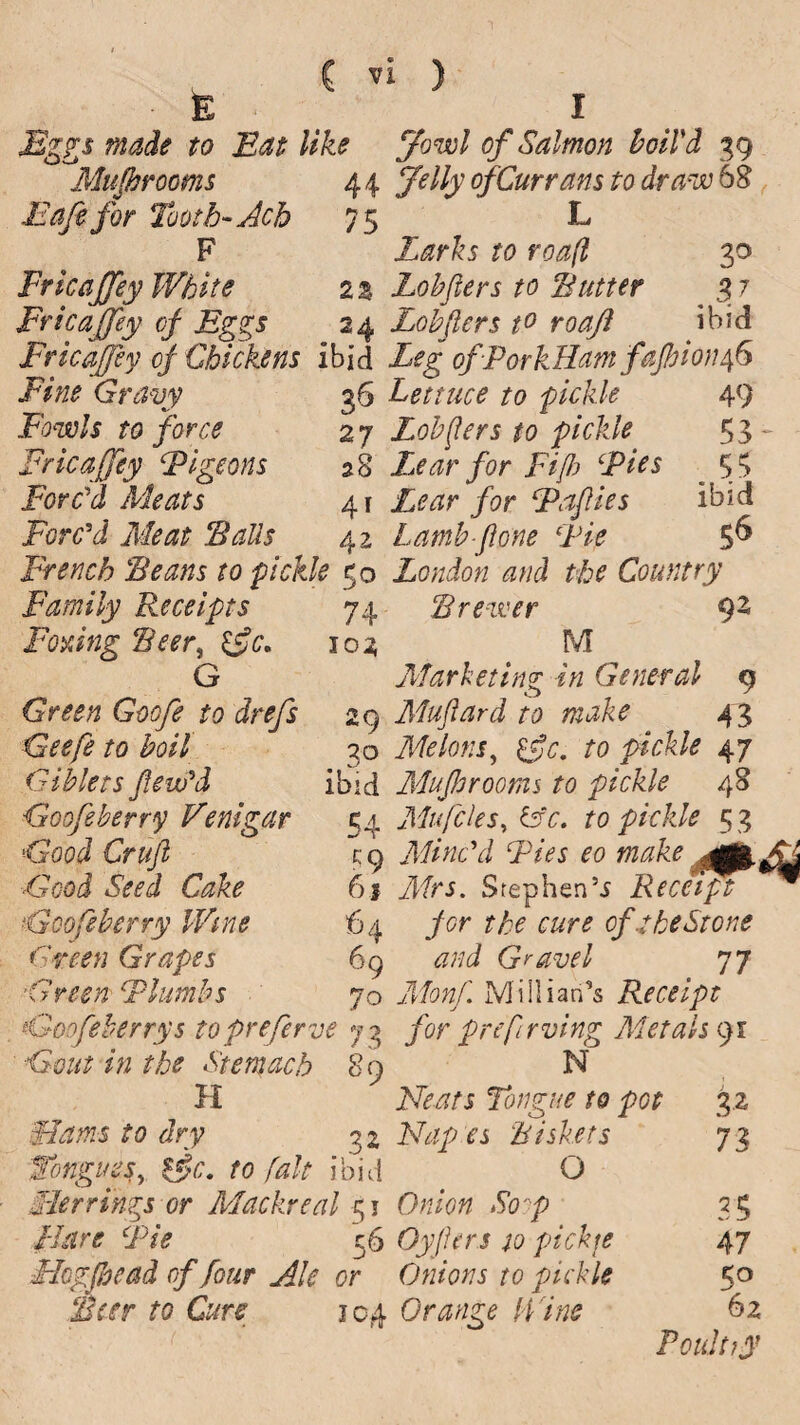 ( vi )
E
Eggs made to Eat like
Muſhrooms 44
Eaſe for Tooth-Ach 75
F
Fricaſſey White 22
Fricaſſey of Eggs 24
Fricaſſey of Chickens ibid
Fine Gravy 36
Fowls to force 27
Fricaſſey Pigeons 28
Forc'd Meats 41
Forc'd Meat Balls 42
French Beans to pickle 50
Family Receipts 74
Foxing Beer, &c. 102
G
Green Gooſe to dreſs 29
Geeſe to boil 30
Giblets ſtew'd ibid
Gooſeberry Venigar 54
Good Cruſt 59
Good Seed Cake 61
Gooſeberry Wine 64
Green Grapes 69
Green Plumbs 70
Gooſeberrys to preſerve 73
Gout in the Stemach 89
H
Hams to dry 32
Tongues, &c. to ſalt ibid
Herrings or Mackreal 51
Hare Pie 56
Hogſhead of ſour Ale or
Beer to Cure 104
I
Jowl of Salmon boil'd 39
Jelly of Currans to draw 68
L
Larks to roaſt 30
Lobſters to Butter 37
Lobſters to roaſt ibid
Leg of Pork Ham faſhion 46
Lettuce to pickle 49
Lobſters to pickle 53
Lear for Fiſh Pies 55
Lear for Paſties ibid
Lamb-ſtone Pie 56
London and the Country
Brewer 92
M
Marketing in General 9
Muſtard to make 43
Melons, &c. to pickle 47
Muſhrooms to pickle 48
Muſcles, &c. to pickle 53
Minc'd Pies eo make
Mrs. Stephen's Receipt
for the cure of the Stone
and Gravel 77
Monſ. Millian's Receipt
for preſerving Metals 91
N
Neats Tongue to pot 32
Naples Biskets 73
O
Onion Soop 35
Oyſters to pickle 47
Onions to pickle 50
Orange Wine 62
Poultry